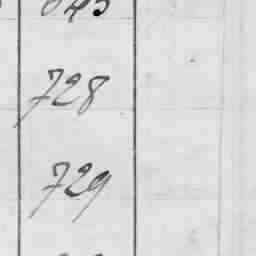 728
729